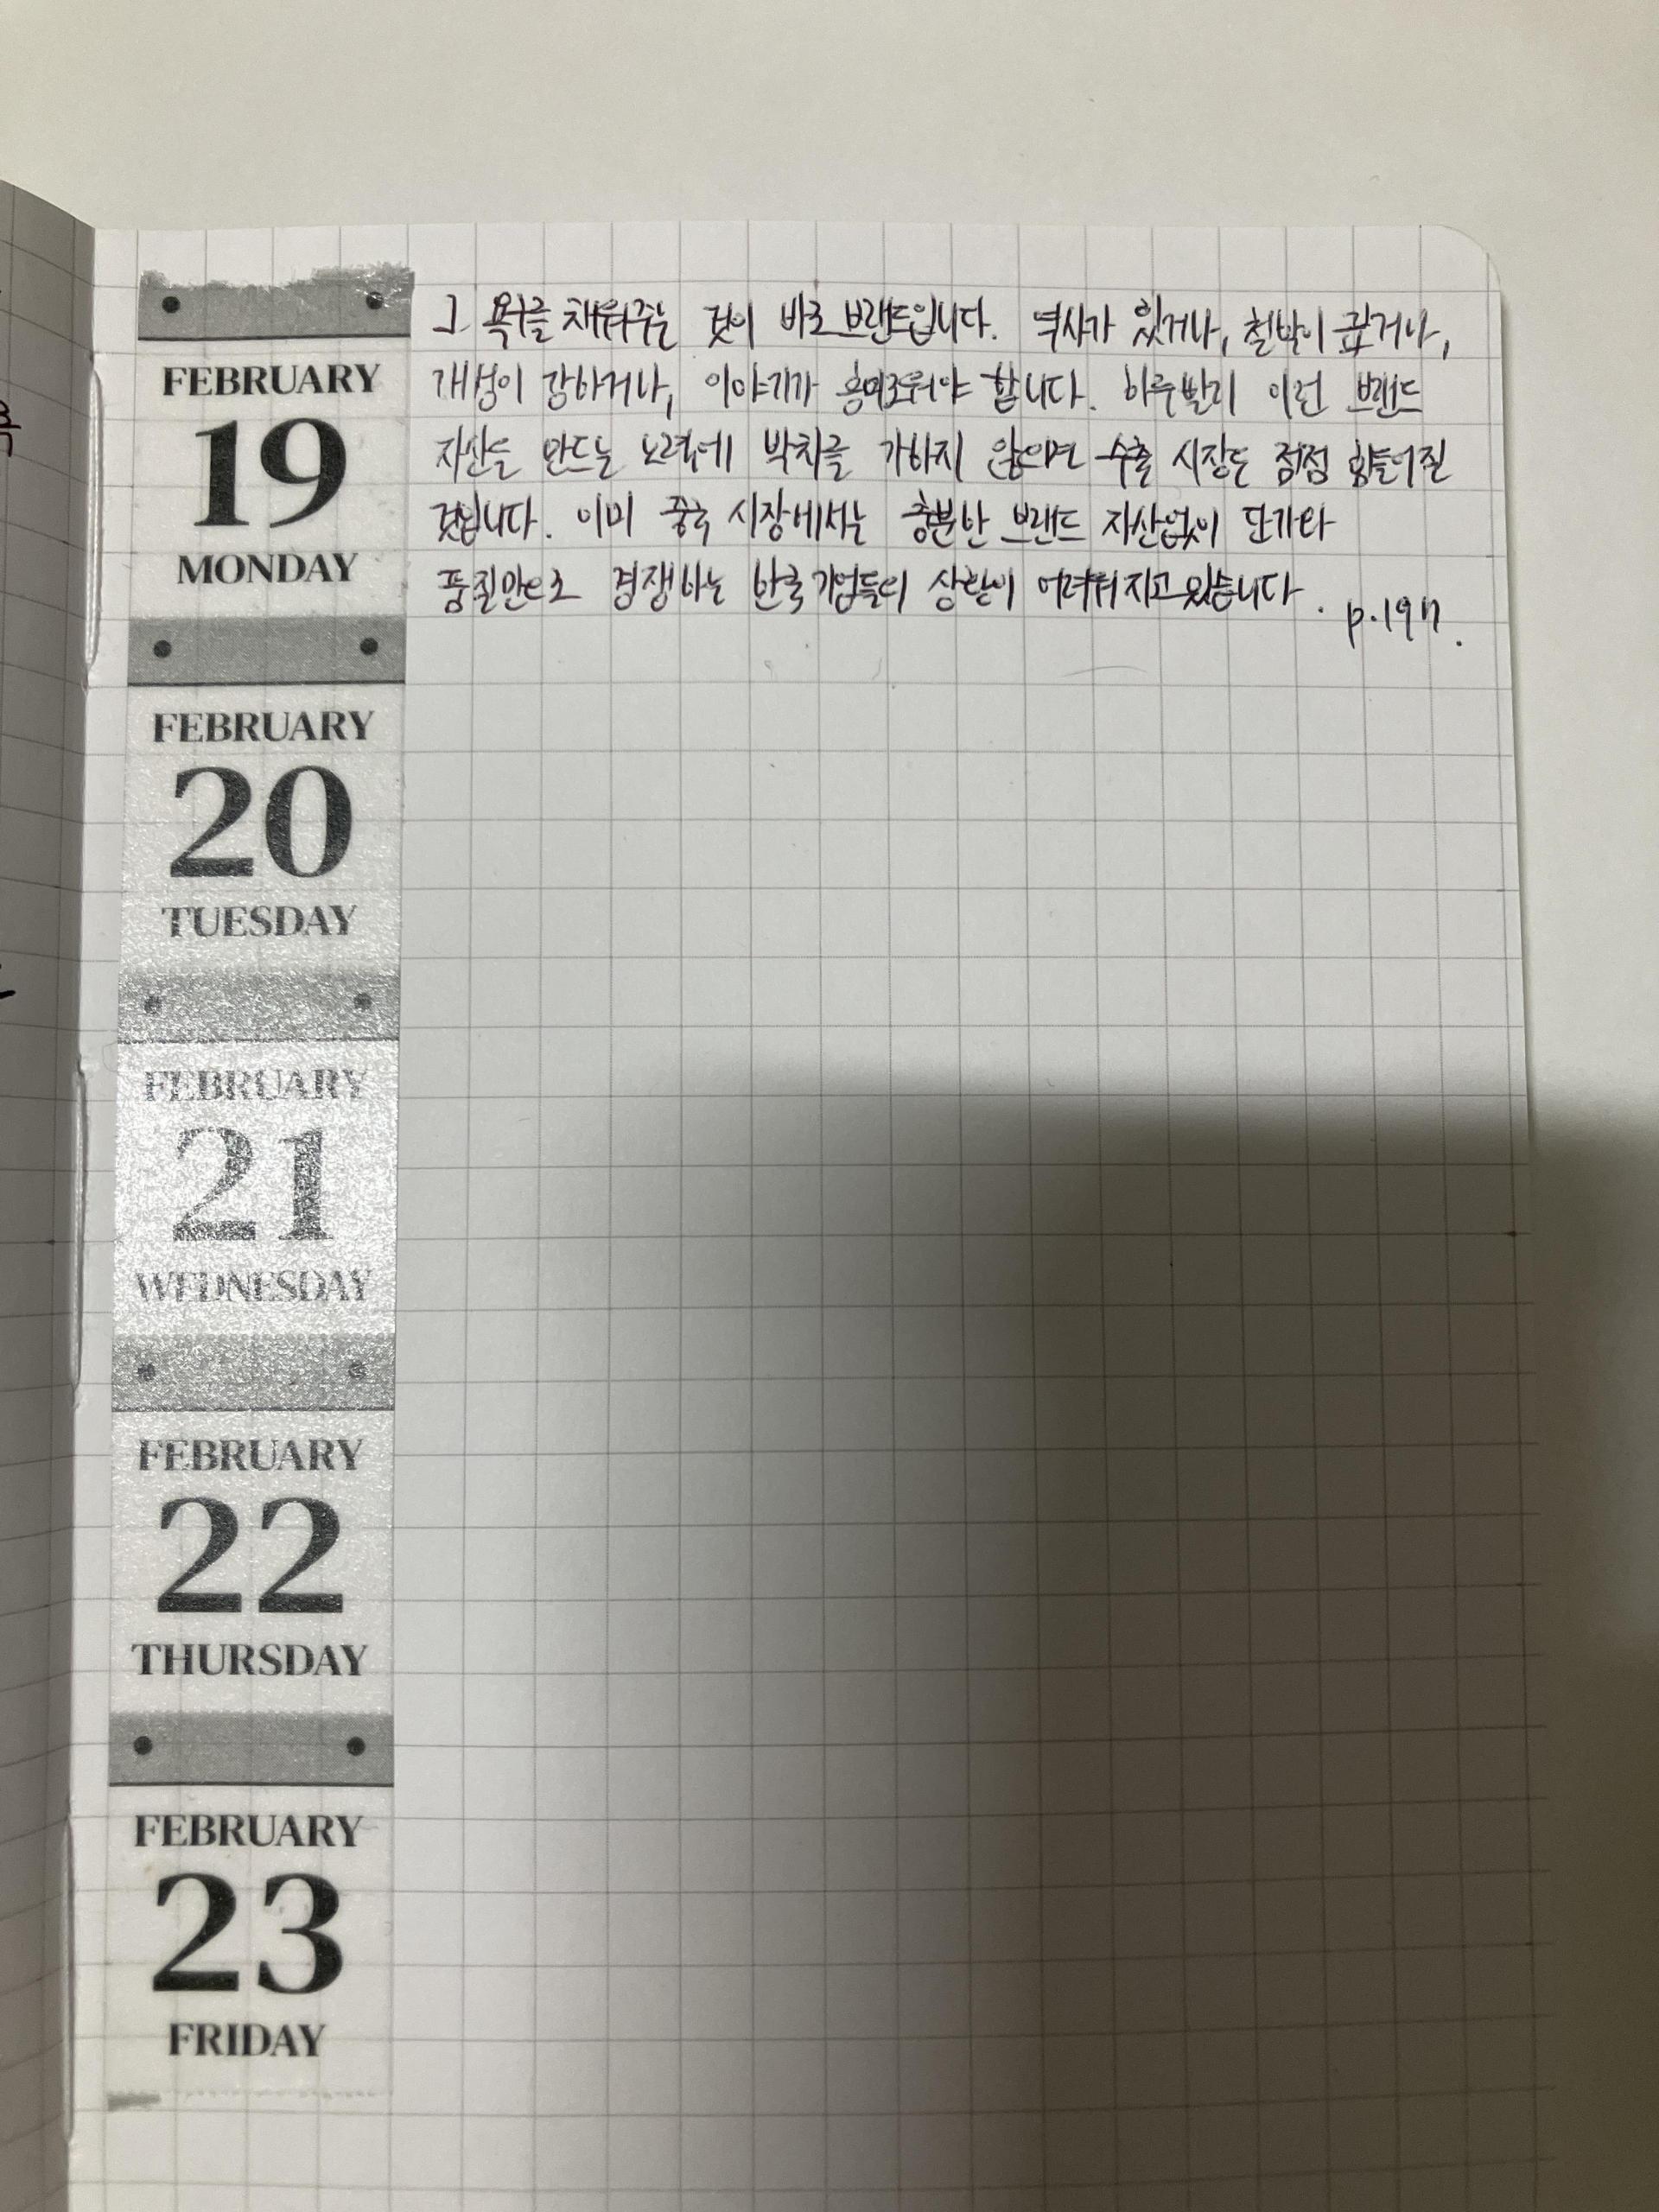 FEBRUARY
19
MONDAY
그 욕구를 채워주는 것이 바로 브랜드입니다. 역사가 있거나, 철학이 깊거나,
개성이 강하거나, 이야기가 흥미로워야 합니다. 하루빨리 이런 브랜드
자산을 만드는 노력에 박차를 가하지 않으면 수출 시장은 점점 힘들어질
것입니다. 이미 중국 시장에서는 충분한 브랜드 자산없이 단가와
품질만으로 경쟁하는 한국기업들의 상황이 어려워지고 있습니다.
p.197.
FEBRUARY
20
TUESDAY
FEBRUARY
21
WEDNESDAY
FEBRUARY
22
THURSDAY
FEBRUARY
23
FRIDAY